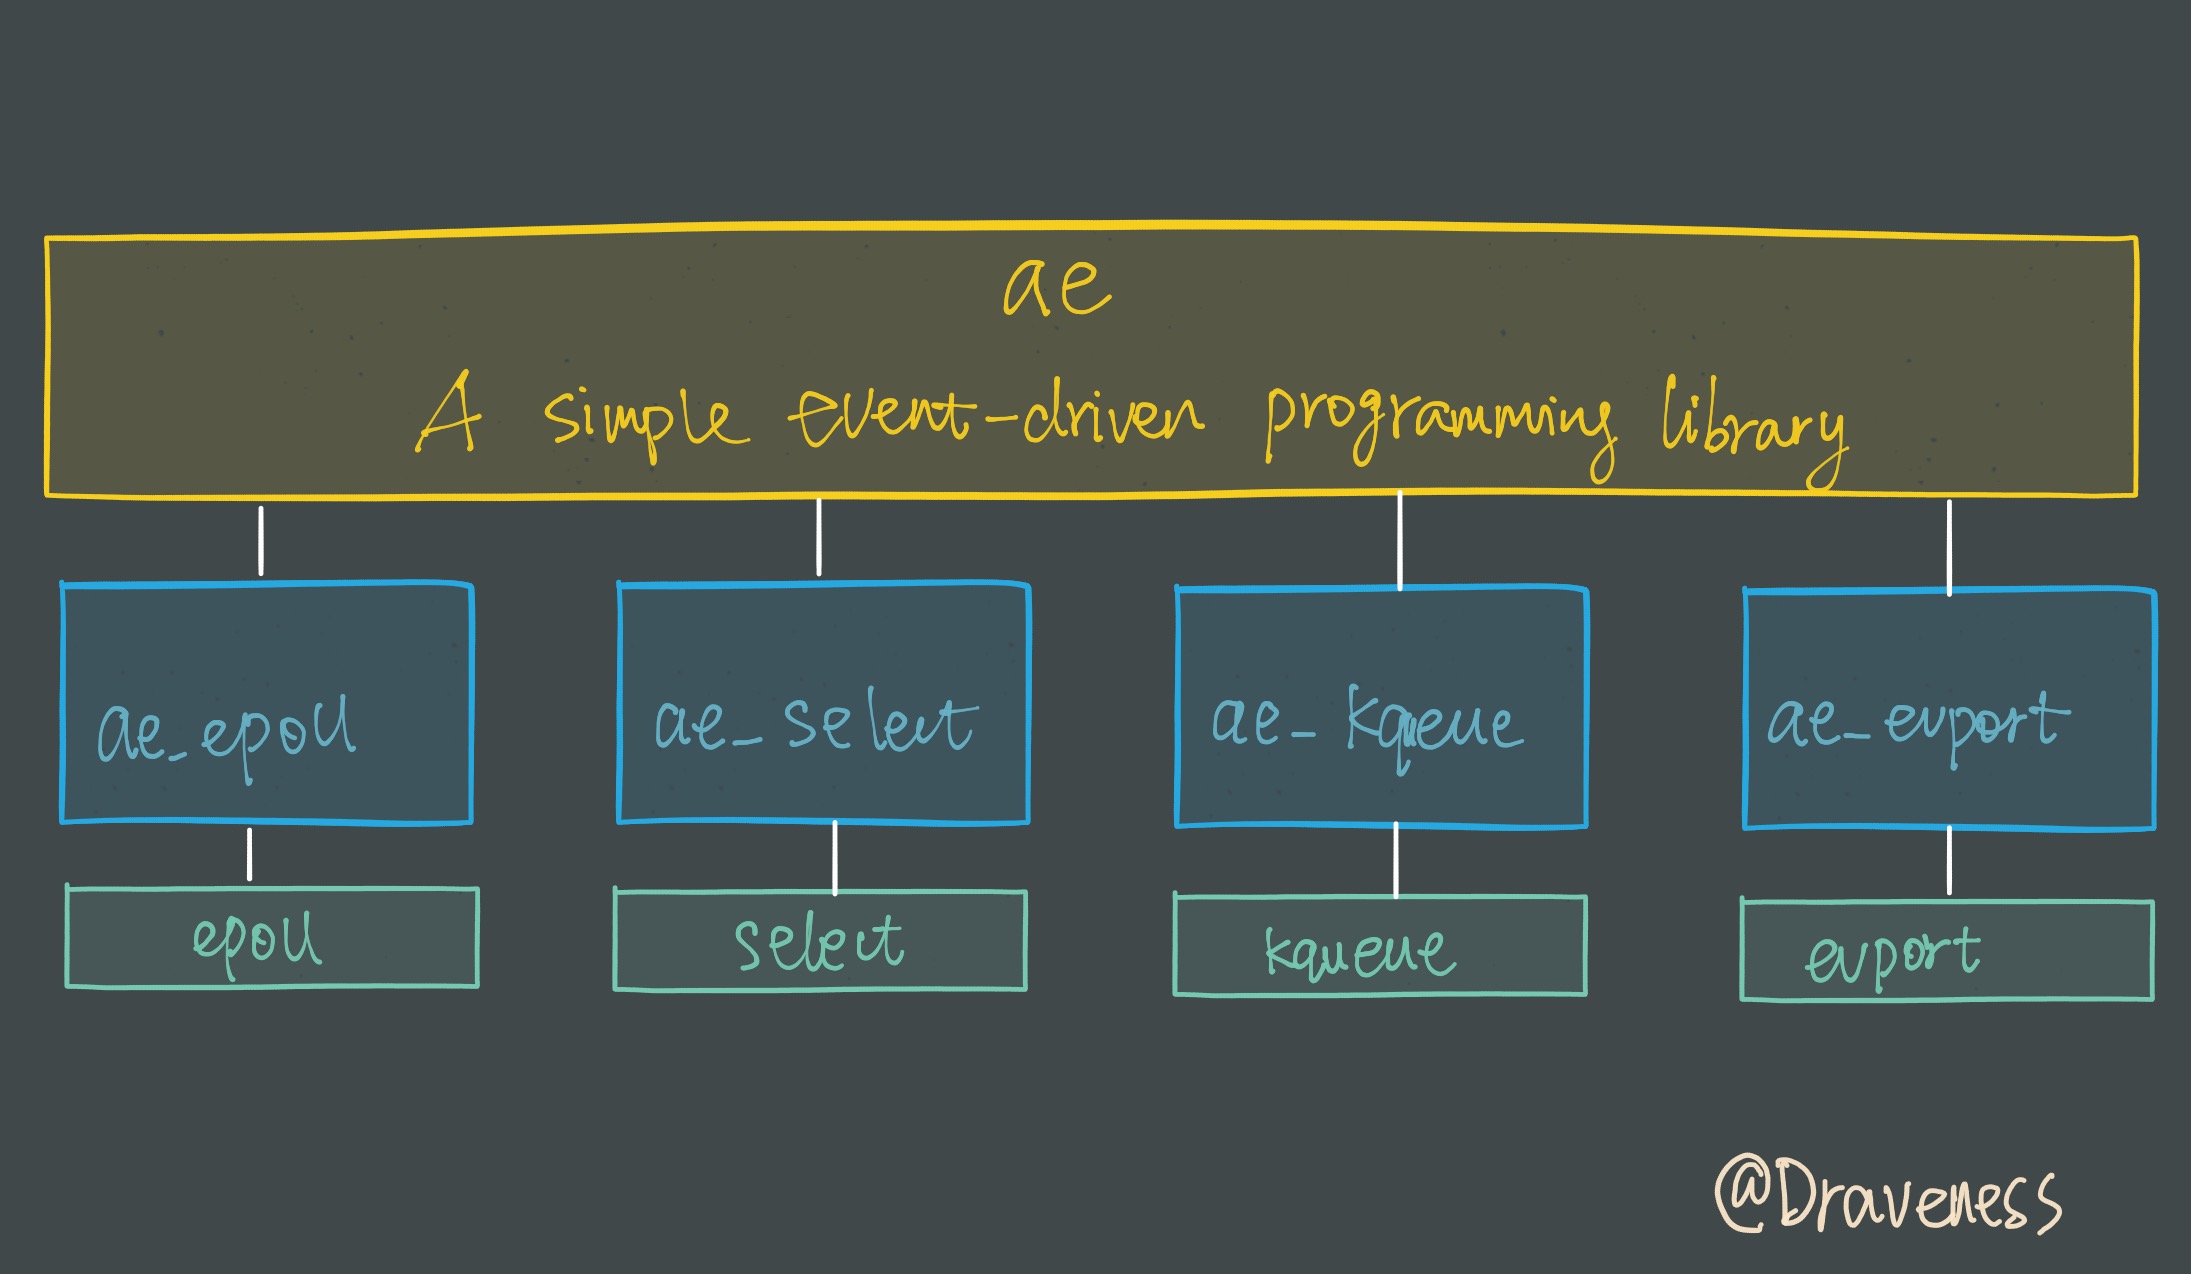 ae
A simple event-driven programming library
ae_epoll
ae_select
ae_kqueue
ae_evport
epoll
select
kqueue
evport
@Draveness